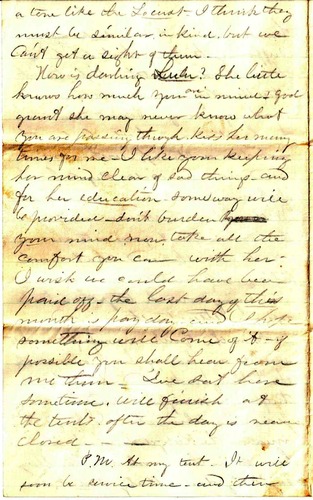 a tone like the Locust. I think they
must be similar in kind. but we
Can't get a sight of them.
How is darling Lulu? She little
knows how much you are in mind & God
grant she may never know what
you are passing through Kiss her many
times for me - I like your keeping
her mind clear of sad things - and
for her education - someway will
be provided - don't burden
your mind now, take all the
comfort you can with her -
I wish we could have been
paid off - the last day of this
month is pay day and I hope
something will Come of it - if
possible you shall hear from
me then - I've sat here
sometime. Will finish at
the tent. after the day is near
closed -
P.M. At my tent - It will
soon be service time - and then